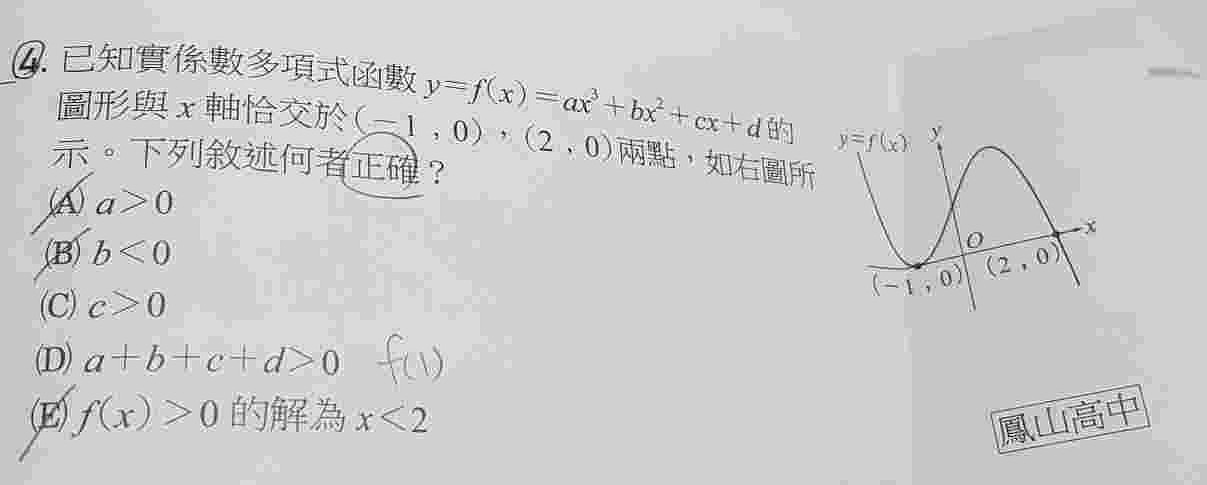 4. 已知實係數多項式函數 y=f(x)=ax³+bx²+cx+d 的
圖形與 x 軸恰交於(-1,0),(2,0)兩點,如右圖所
示。下列敘述何者正確?
(A) a>0
(B) b<0
(C) c>0
(D) a+b+c+d>0 f(1)
(E) f(x)>0 的解為 x<2
y=f(x)
y
x
O
(-1,0)
(2,0)
鳳山高中